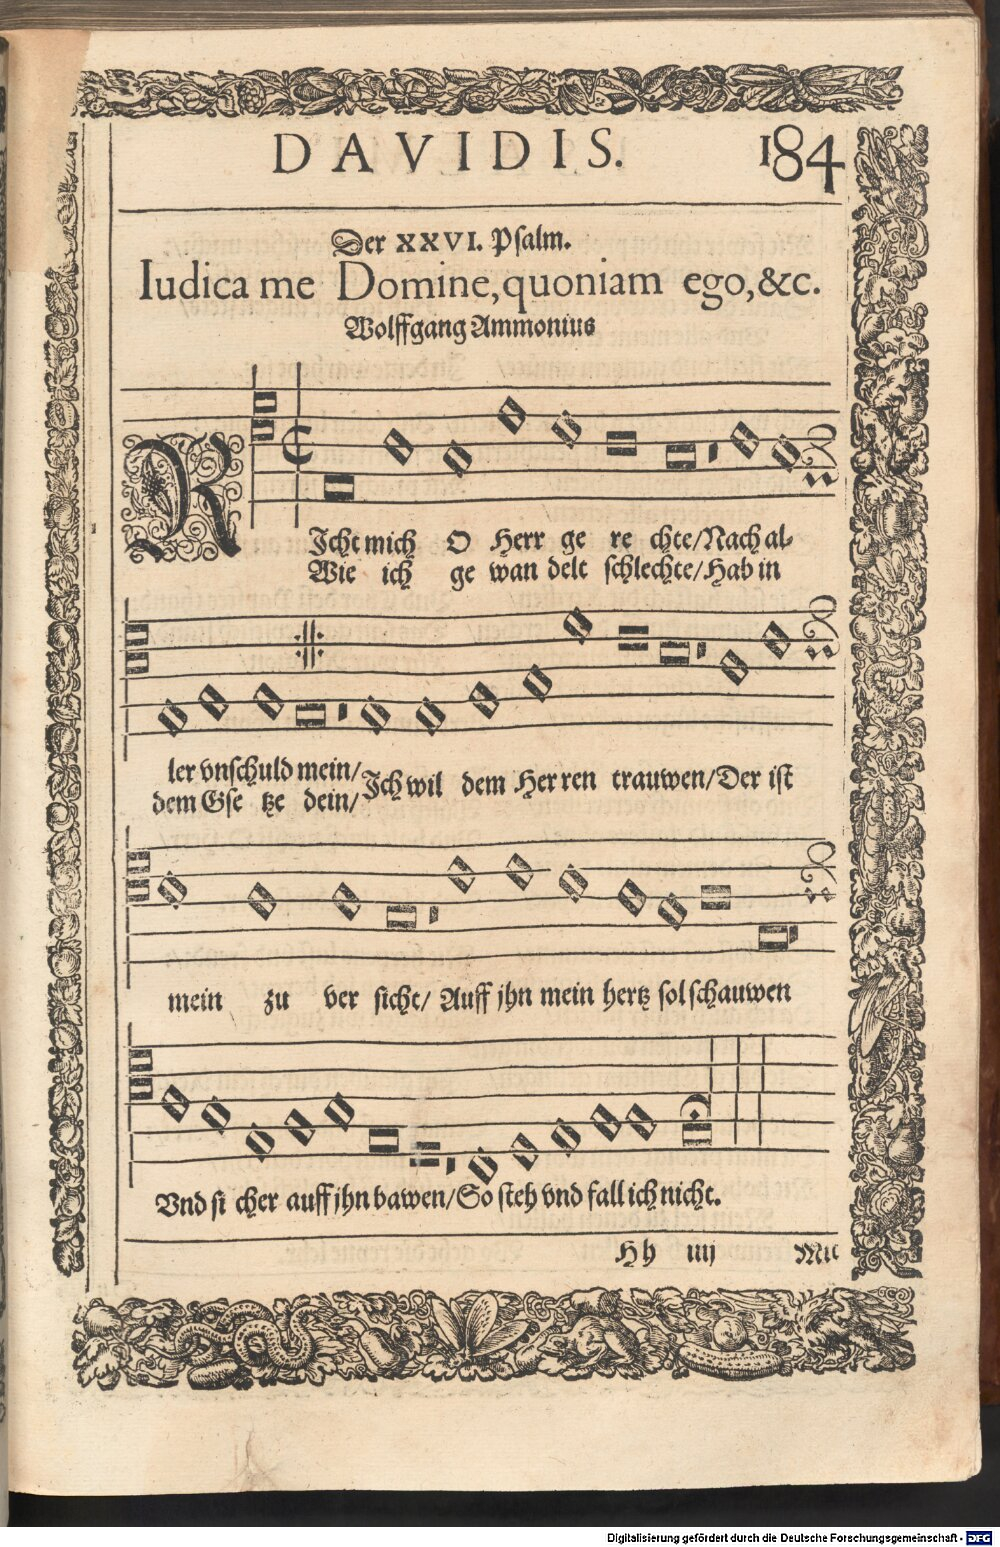 DAVIDIS. 184
Der XXVI. Psalm.
Iudica me Domine, quoniam ego, &c.
Wolffgang Ammonius
RJcht mich O Herr ge re chte/Nach al-
Wie ich ge wan delt schlechte/Hab in
ler vnschuld mein/Jch wil dem Her ren trauwen/Der ist
dem Gse tze dein/
mein zu ver sicht/ Auff jhn mein hertz sol schauwen
Vnd si cher auff jhn bawen/So steh vnd fall ich nicht.
Hh iiij Mit
Digitalisierung gefördert durch die Deutsche Forschungsgemeinschaft - DFG